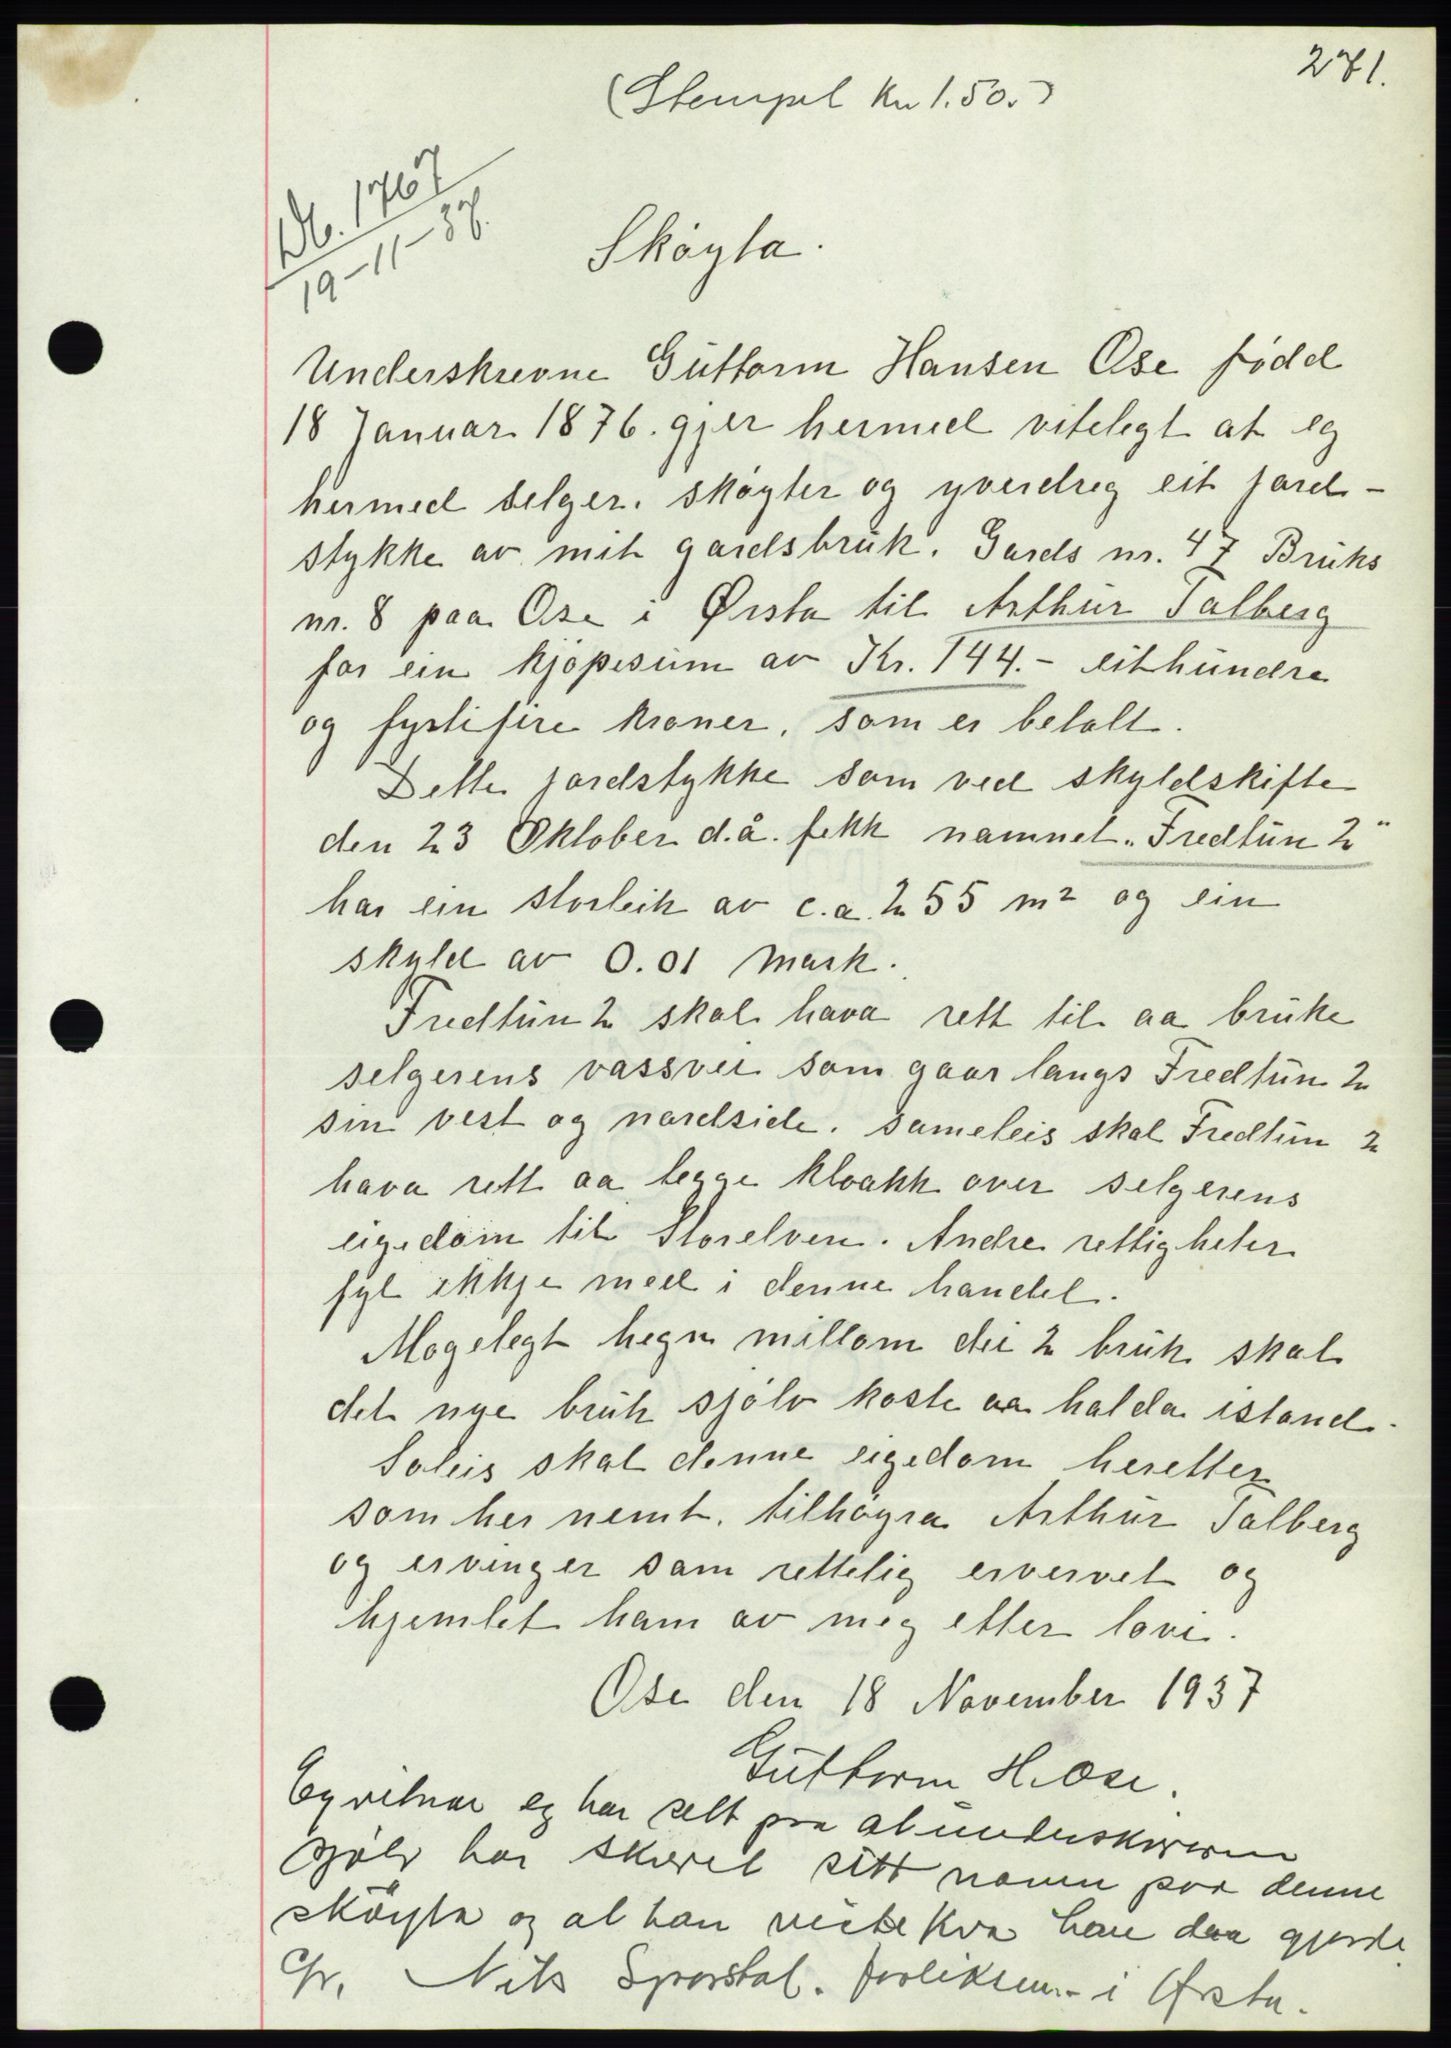 271.
(Stempel kr 1.50.)
Db. 1767
19-11-37.
Skøyta.
Underskrevne Guttorm Hansen Ose fødd
18 Januar 1876. gjer hermed vitelegt at eg
hermed selger. skøyter og yverdreg eit jord-
stykke av mit gardsbruk. Gards nr. 47 Bruks
nr. 8 paa Ose i Ørsta til Arthur Talberg
for ein kjøpesum av Kr. 144.- eithundre
og fyrtifire kroner, som er betalt.
Dette jordstykke som ved skyldskifte
den 23 Oktober d.å. fekk namnet „Fredtun 2"
har ein storleik av c.a. 255 m² og ein
skyld av 0.01 mark.
Fredtun 2 skal hava rett til aa bruke
selgerens vassvei som gaar langs Fredtun 2
sin vest og nordside. sameleis skal Fredtun 2
hava rett aa legge kloakk over selgerens
eigedom til Storelven. Andre rettigheter
fyl ikkje med i denne handel.
Mogelegt hegn millom dei 2 bruk skal
det nye bruk sjølv koste aa halda istand.
Soleis skal denne eigedom heretter
som her nemt. tilhøyra Arthur Talberg
og ervinger som rettelig ervervet og
hjemlet ham av meg etter lovi.
Ose den 18 November 1937
Guttorm H. Ose.
Eg vitnar eg har sett paa at underskrivern
sjølv har skrevet sitt namn paa denne
skøyta og at han viste kva han daa gjorde
Nils Sporstøl. forliksm. i Ørsta.